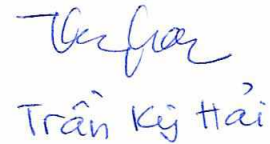 Trần Kỳ Hải